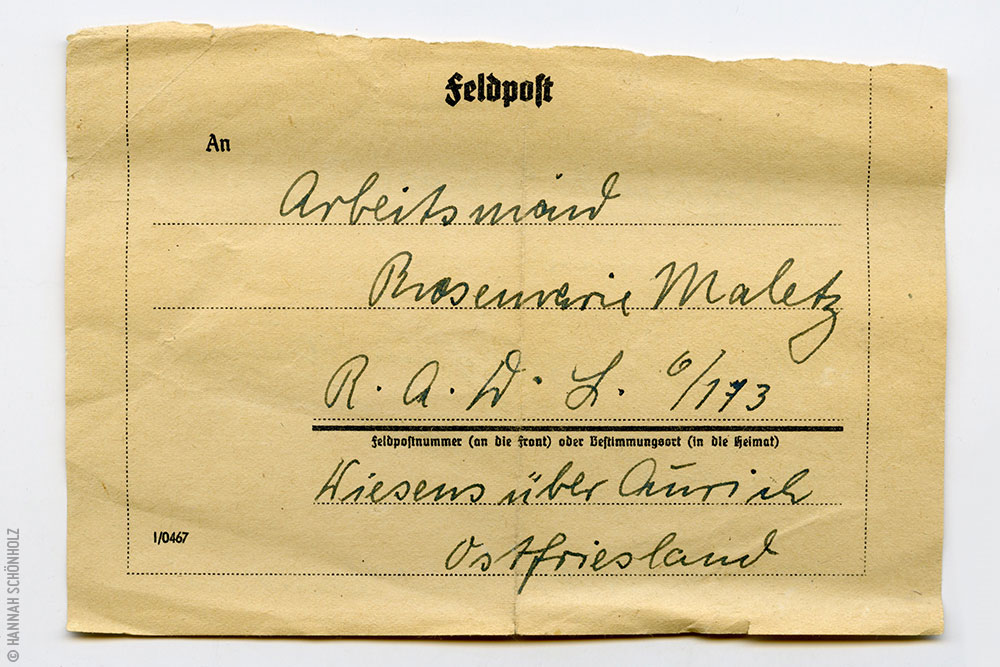 Feldpost
An
Arbeitsmaid
Rosemarie Maletz
R. A. D. L. 6/173
Feldpostnummer (an die Front) oder Bestimmungsort (in die Heimat)
Wiesens über Aurich
Ostfriesland
I/0467
© HANNAH SCHÖNHOLZ